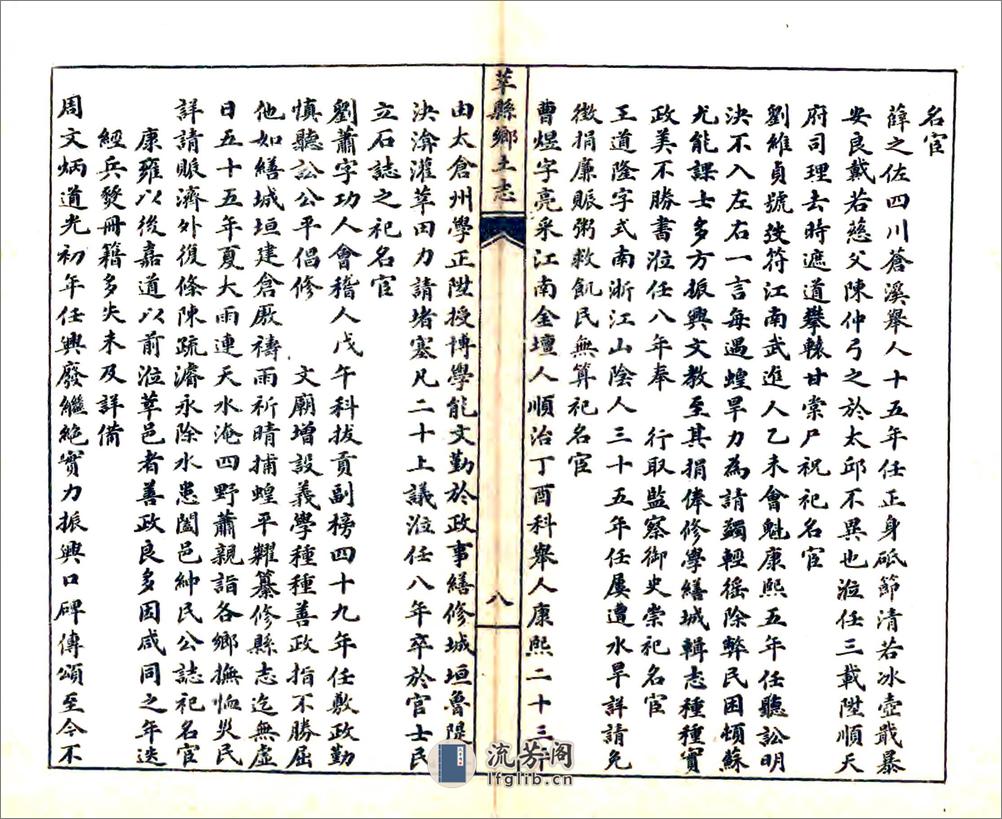 名宦
薛之佐四川蒼溪舉人十五年任正身砥節清若冰壺戢暴
安良戴若慈父陳仲弓之於太邱不異也涖任三載陞順天
府司理去時遮道攀轅甘棠尸祝祀名宦
劉維貞號 符江南武進人乙未會魁康熙五年任聽訟明
決不入左右一言每遇蝗旱力為請蠲輕徭除弊民困頓蘇
尤能課士多方振興文教至其捐俸修學繕城輯志種種實
政美不勝書涖任八年奉 行取監察御史崇祀名宦
王道隆字式南浙江山陰人三十五年任屢遭水旱詳請免
徵捐廉賑粥救飢民無算祀名宦
曹煜字亮采江南金壇人順治丁酉科舉人康熙二十三
萃縣鄉土志
八
由太倉州學正陞授博學能文勤於政事繕修城垣魯隄
決渰灌萃田力請堵塞凡二十上議涖任八年卒於官士民
立石誌之祀名宦
劉蕭字功人會稽人戊午科拔貢副榜四十九年任敷政勤
慎聽訟公平倡修 文廟增設義學種種善政指不勝屈
他如繕城垣建倉廒禱雨祈晴捕蝗平糶纂修縣志迄無虛
日五十五年夏大雨連天水淹四野蕭親詣各鄉撫恤災民
詳請賑濟外復條陳疏濬永除水患闔邑紳民公誌祀名宦
康雍以後嘉道以前涖萃邑者善政良多因咸同之年迭
經兵燹冊籍多失未及詳備
周文炳道光初年任興廢繼絕實力振興口碑傳頌至今不
流芳阁
lfglib.cn